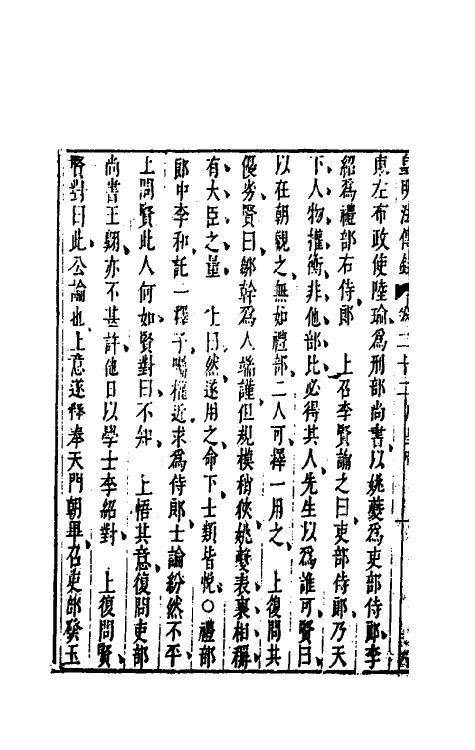 皇明法傳錄 卷二十二
東左布政使陸瑜爲刑部尚書以姚夔爲吏部侍郎李
紹爲禮部右侍郎 上召李賢諭之曰吏部侍郎乃天
下人物權衡非他部比必得其人先生以爲誰可賢曰
以在朝觀之無如禮部二人可擇一用之 上復問其
優劣賢曰鄒幹爲人端謹但規模稍狹姚夔表裏相稱
有大臣之量 上曰然遂用之命下士類皆悅○禮部
郎中李和託一釋子囑權近求爲侍郎士論紛然不平
上問賢此人何如賢對曰不知 上悟其意復問吏部
尚書王翱亦不甚許他日以學士李紹對 上復問賢
賢對曰此公論也上意遂釋奉天門朝畢召吏部發玉